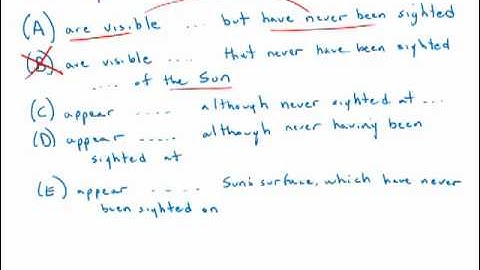 (A) are visible ... but have never been sighted
(B) are visible .... that never have been sighted
.... of the Sun
(C) appear ..... although never sighted at ...
(D) appear ..... although never having been
sighted at
(E) appear ..... Sun's surface, which have never
been sighted on